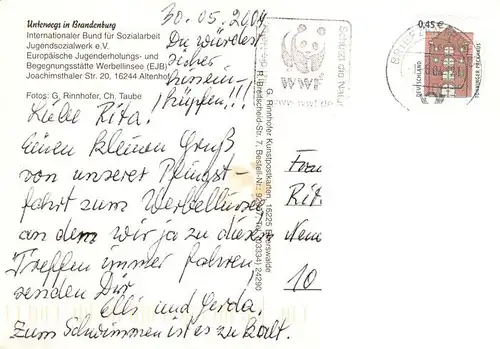 Unterwegs in Brandenburg
Internationaler Bund für Sozialarbeit
Jugendsozialwerk e.V.
Europäische Jugenderholungs- und
Begegnungsstätte Werbellinsee (EJB)
Joachimsthaler Str. 20, 16244 Altenhof
Fotos: G. Rinnhofer, Ch. Taube
30.05.2004
Du würdest
sicher
hüpfen!!!
Liebe Rita!
Einen kleinen Gruß
von unserer Pfingst-
fahrt zum Werbellinsee
an dem wir ja zu diesem
Treffen immer fahren,
senden Dir
Elli und Gerda.
Zum Schwimmen ist es zu kalt.
Frau
Rit
10
G. Rinnhofer Kunstpostkarten, 16225 Eberswalde
R.-Breitscheid-Str. 7, Bestell-Nr.
(03334) 24290
Schützt die Natur
WWF
www.wwf.de
0,45 €
DEUTSCHLAND
BRIEF